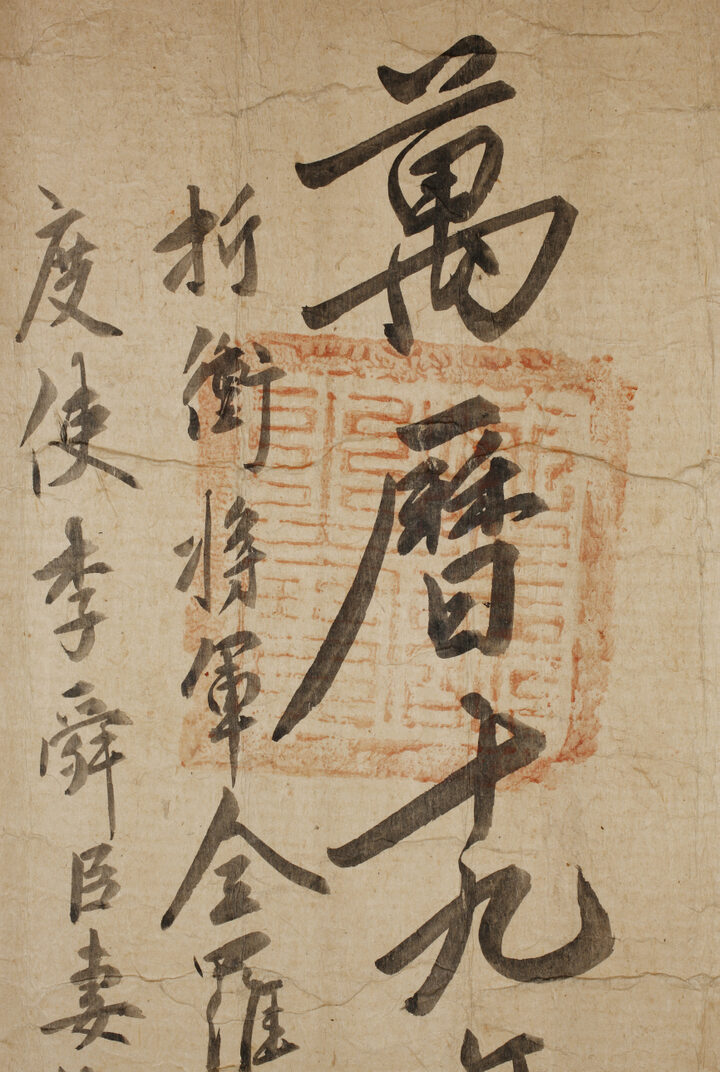 萬曆十九年
折衝将軍全羅
度使李舜臣妻